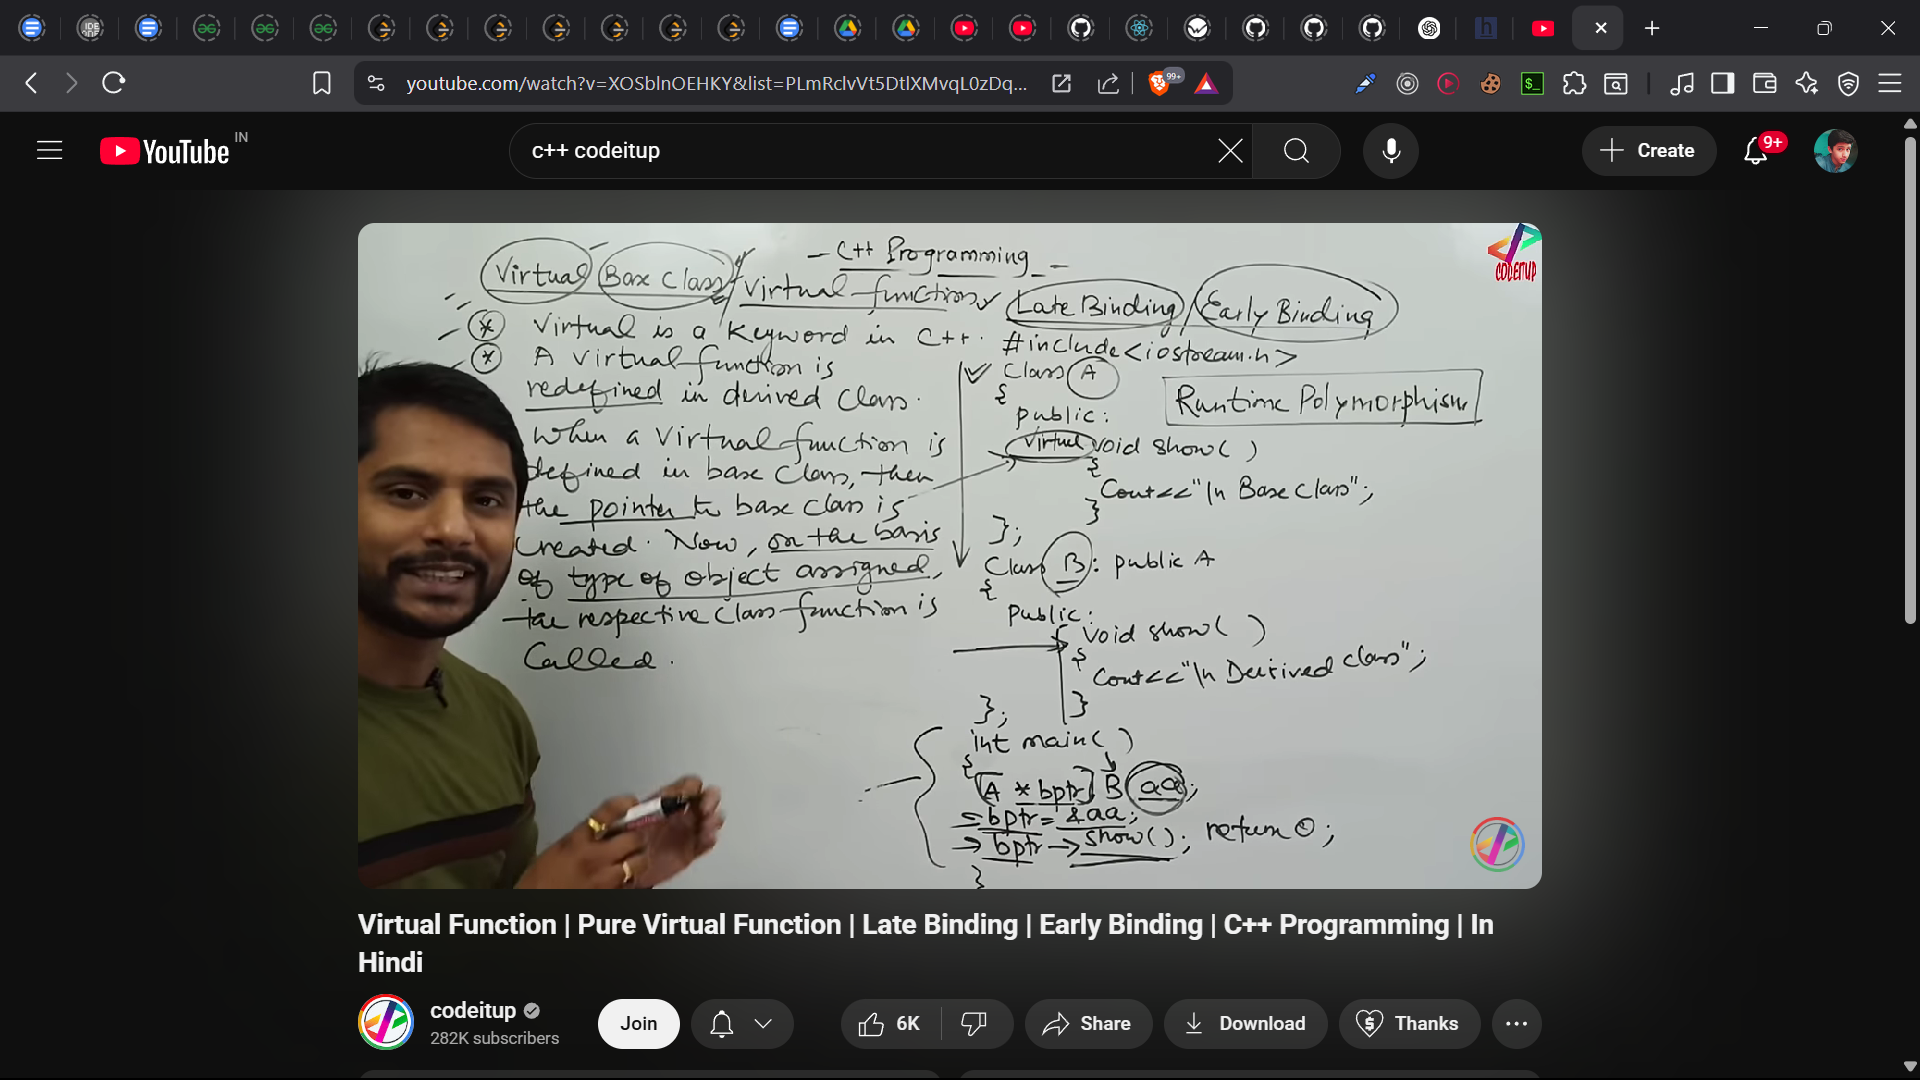 youtube.com/watch?v=XOSblnOEHKY&list=PLmRclvVt5DtlXMvqL0zDq...
99+
YouTube IN
c++ codeitup
Create
9+
C++ Programming
Virtual Base Class / Virtual function, Late Binding / Early Binding
CODEITUP
Virtual is a keyword in C++.
A virtual function is
redefined in derived class.
When a virtual function is
defined in base class, then
the pointer to base class is
created. Now, on the basis
of type of object assigned,
the respective class function is
Called.
#include<iostream.h>
Class A
{
public:
virtual void show( )
{
Cout<<"\n Base class";
}
};
Class B : public A
{
public:
void show( )
{
Cout<<"\n Derived class";
}
};
int main( )
{
A *bptr; B aa;
bptr = &aa;
bptr->show(); return 0;
}
Runtime Polymorphism
Virtual Function | Pure Virtual Function | Late Binding | Early Binding | C++ Programming | In
Hindi
codeitup
282K subscribers
Join
6K
Share
Download
Thanks